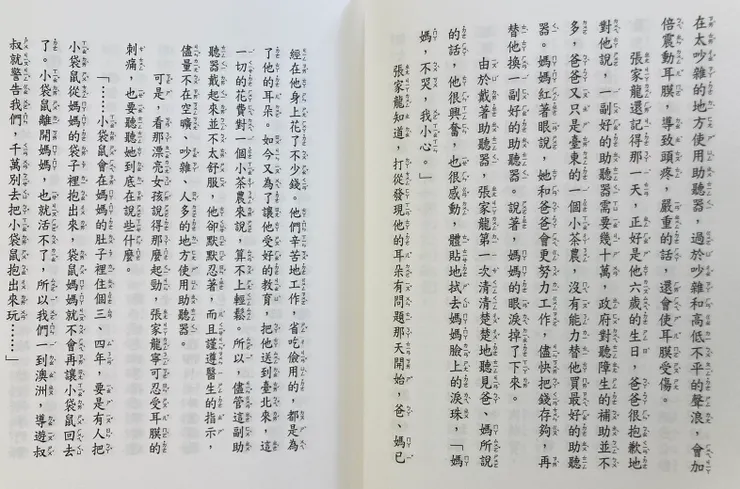 在太吵雜的地方使用助聽器,過於吵雜和高低不平的聲浪,會加
倍震動耳膜,導致頭疼,嚴重的話,還會使耳膜受傷。
張家龍還記得那一天,正好是他六歲的生日,爸爸很抱歉地
對他說,一副好的助聽器需要幾十萬,政府對聽障生的補助並不
多,爸爸又只是臺東的一個小茶農,沒有能力替他買最好的助聽
器。媽媽紅著眼說,她和爸爸會更努力工作,儘快把錢存夠,再
替他換一副好的助聽器。說著,媽媽的眼淚掉了下來。
由於戴著助聽器,張家龍第一次清清楚楚地聽見爸、媽所說
的話,他很興奮,也很感動,體貼地拭去媽媽臉上的淚珠,「媽
媽,不哭,我小心。」
張家龍知道,打從發現他的耳朵有問題那天開始,爸、媽已
經在他身上花了不少錢。他們辛苦地工作,省吃儉用的,都是為
了他的耳朵。如今又為了讓他受好的教育,把他送到臺北來,這
一切的花費對一個小茶農來說,算不上輕鬆。所以,儘管這副助
聽器戴起來並不太舒服,他卻默默忍著,而且謹遵醫生的指示,
儘量不在空曠、吵雜、人多的地方使用助聽器。
可是,看那漂亮女孩說得那麼起勁,張家龍寧可忍受耳膜的
刺痛,也要聽聽她到底在說些什麼。
「……小袋鼠會在媽媽的肚子裡住個三、四年,要是有人把
小袋鼠從媽媽的袋子裡抱出來,袋鼠媽媽就不會再讓小袋鼠回去
了。小袋鼠離開媽媽,也就活不了,所以我們一到澳洲,導遊叔
叔就警告我們,千萬別去把小袋鼠抱出來玩……」